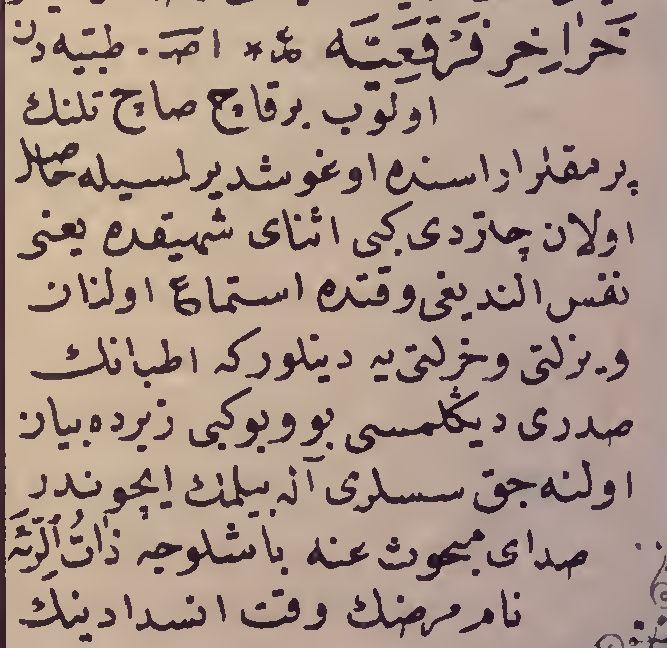 خَرَاخِرِ فَرْقَعِيَّه ❊ اصـ. طبيّه دن
اولوب برقاچ صاچ تلنك
پرمقلر اراسنده اوغوشديرلمسيله حاصل
اولان چاتردى كبى اثناى شهيقده يعنى
نفس النديغى وقتده استماع اولنان
ويزلتى وخرلتى يه دينلوركه اطبانك
صدرى ديڭلمسى بو وبوكبى زيرده بيان
اولنه جق سسلرى آڭه بيلمك ايچوندر
صداى مبحوث عنه باشلوجه ذَاتُ الرِّئَه
نام مرضك وقت انسدادينك